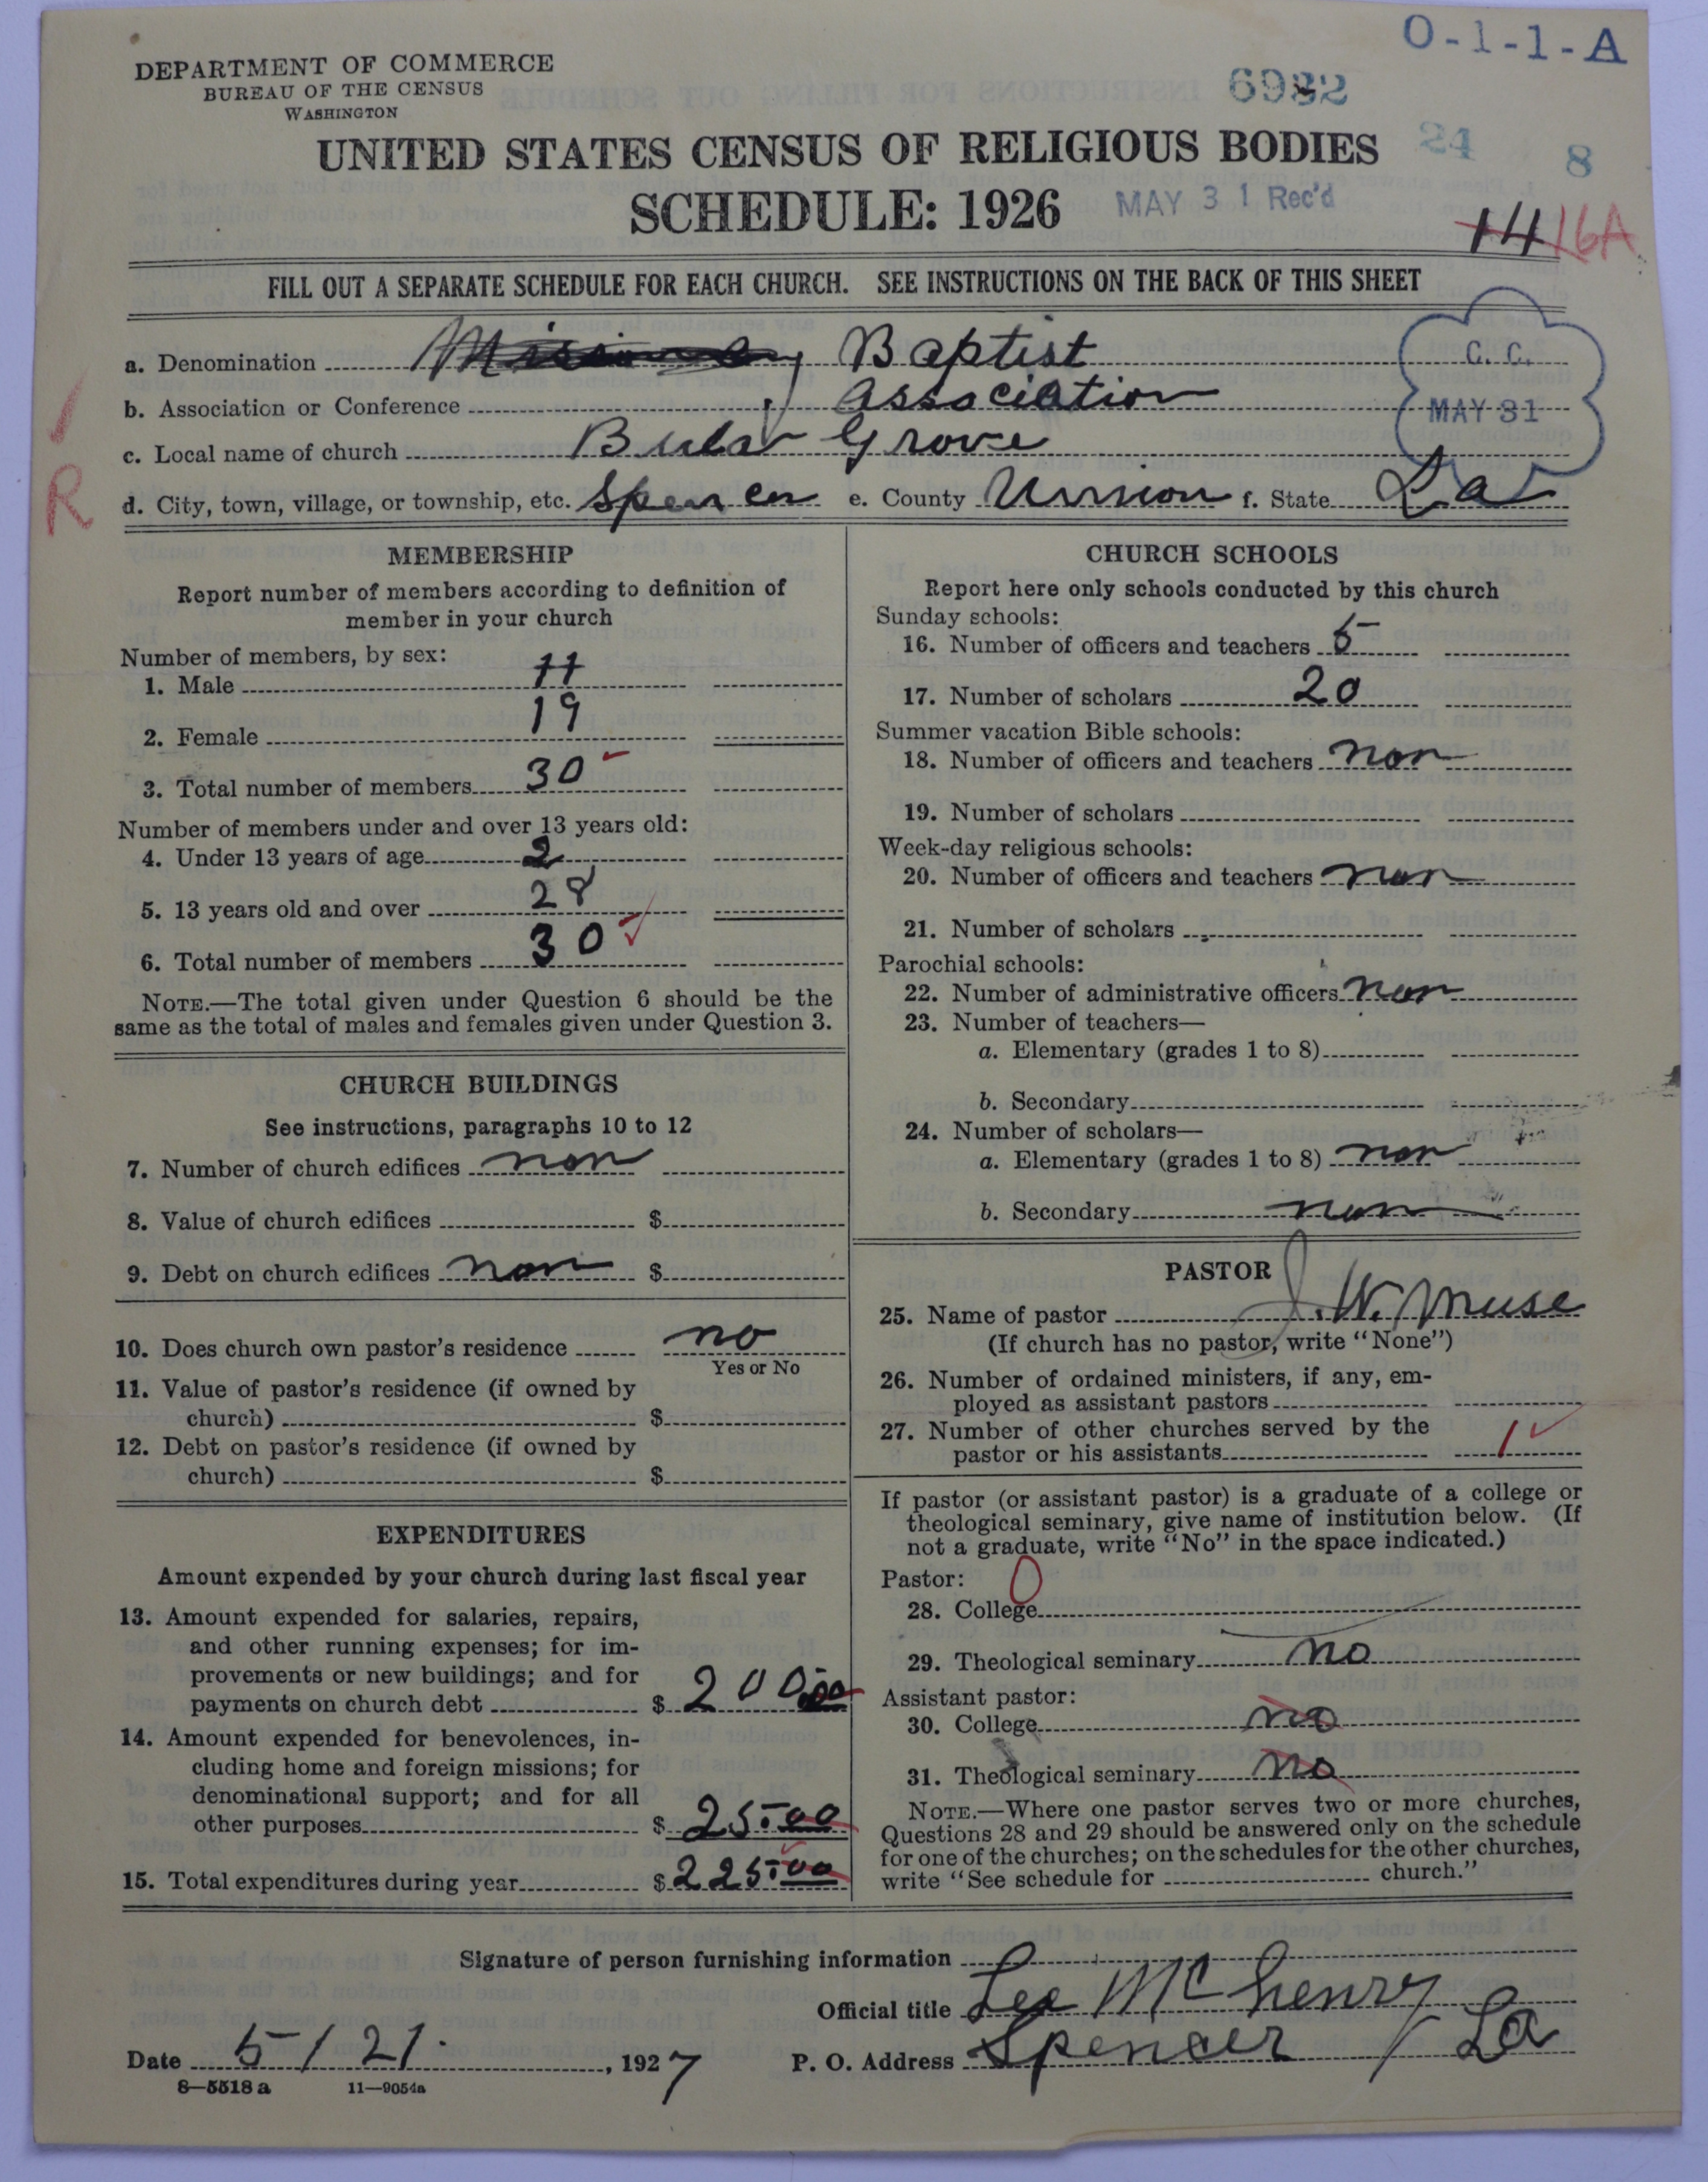 O-1-1-A
DEPARTMENT OF COMMERCE
BUREAU OF THE CENSUS
WASHINGTON
6982
UNITED STATES CENSUS OF RELIGIOUS BODIES
24
8
SCHEDULE: 1926
MAY 31 Rec'd
14 16A
FILL OUT A SEPARATE SCHEDULE FOR EACH CHURCH. SEE INSTRUCTIONS ON THE BACK OF THIS SHEET
a. Denomination Missionary Baptist
b. Association or Conference Association
C. C.
MAY 31
c. Local name of church Bula Grove
d. City, town, village, or township, etc. Spencer e. County Unnion f. State La
R
MEMBERSHIP
Report number of members according to definition of
member in your church
Number of members, by sex:
1. Male 11
2. Female 19
3. Total number of members 30
Number of members under and over 13 years old:
4. Under 13 years of age 2
5. 13 years old and over 28
6. Total number of members 30
NOTE.—The total given under Question 6 should be the
same as the total of males and females given under Question 3.
CHURCH BUILDINGS
See instructions, paragraphs 10 to 12
7. Number of church edifices non
8. Value of church edifices $
9. Debt on church edifices non $
10. Does church own pastor's residence no
Yes or No
11. Value of pastor's residence (if owned by
church) $
12. Debt on pastor's residence (if owned by
church) $
EXPENDITURES
Amount expended by your church during last fiscal year
13. Amount expended for salaries, repairs,
and other running expenses; for im-
provements or new buildings; and for
payments on church debt $ 200.00
14. Amount expended for benevolences, in-
cluding home and foreign missions; for
denominational support; and for all
other purposes $ 25.00
15. Total expenditures during year $ 225.00
CHURCH SCHOOLS
Report here only schools conducted by this church
Sunday schools:
16. Number of officers and teachers 5
17. Number of scholars 20
Summer vacation Bible schools:
18. Number of officers and teachers non
19. Number of scholars
Week-day religious schools:
20. Number of officers and teachers non
21. Number of scholars
Parochial schools:
22. Number of administrative officers non
23. Number of teachers—
a. Elementary (grades 1 to 8)
b. Secondary
24. Number of scholars—
a. Elementary (grades 1 to 8) non
b. Secondary non
PASTOR
25. Name of pastor J. W. Muse
(If church has no pastor, write "None")
26. Number of ordained ministers, if any, em-
ployed as assistant pastors
27. Number of other churches served by the
pastor or his assistants 1
If pastor (or assistant pastor) is a graduate of a college or
theological seminary, give name of institution below. (If
not a graduate, write "No" in the space indicated.)
Pastor: 0
28. College
29. Theological seminary no
Assistant pastor:
30. College no
31. Theological seminary no
NOTE.—Where one pastor serves two or more churches,
Questions 28 and 29 should be answered only on the schedule
for one of the churches; on the schedules for the other churches,
write "See schedule for church."
Signature of person furnishing information
Official title Lee McHenry
Date 5/21, 1927 P. O. Address Spencer / La
8—5518 a 11—9054a